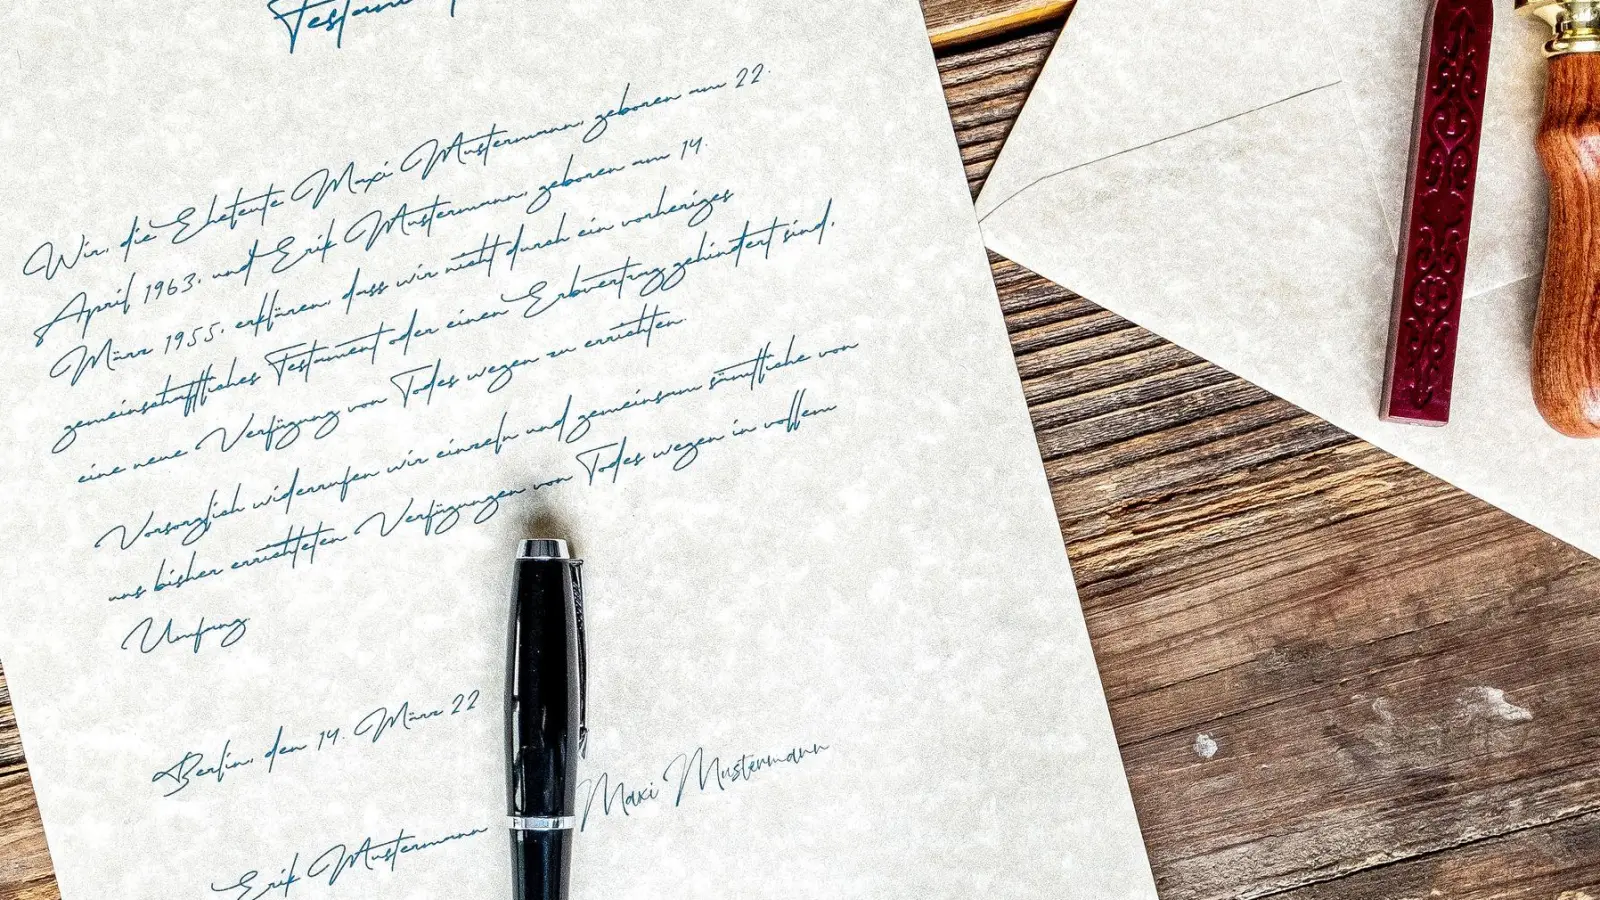 Testament
Wir, die Eheleute Maxi Mustermann, geboren am 22.
April 1963, und Erik Mustermann, geboren am 14.
März 1955, erklären, dass wir nicht durch ein vorheriges
gemeinschaftliches Testament oder einen Erbvertrag gehindert sind,
eine neue Verfügung von Todes wegen zu errichten.
Vorsorglich widerrufen wir einzeln und gemeinsam sämtliche von
uns bisher errichteten Verfügungen von Todes wegen in vollem
Umfang.
Berlin, den 14. März 22
Erik Mustermann
Maxi Mustermann